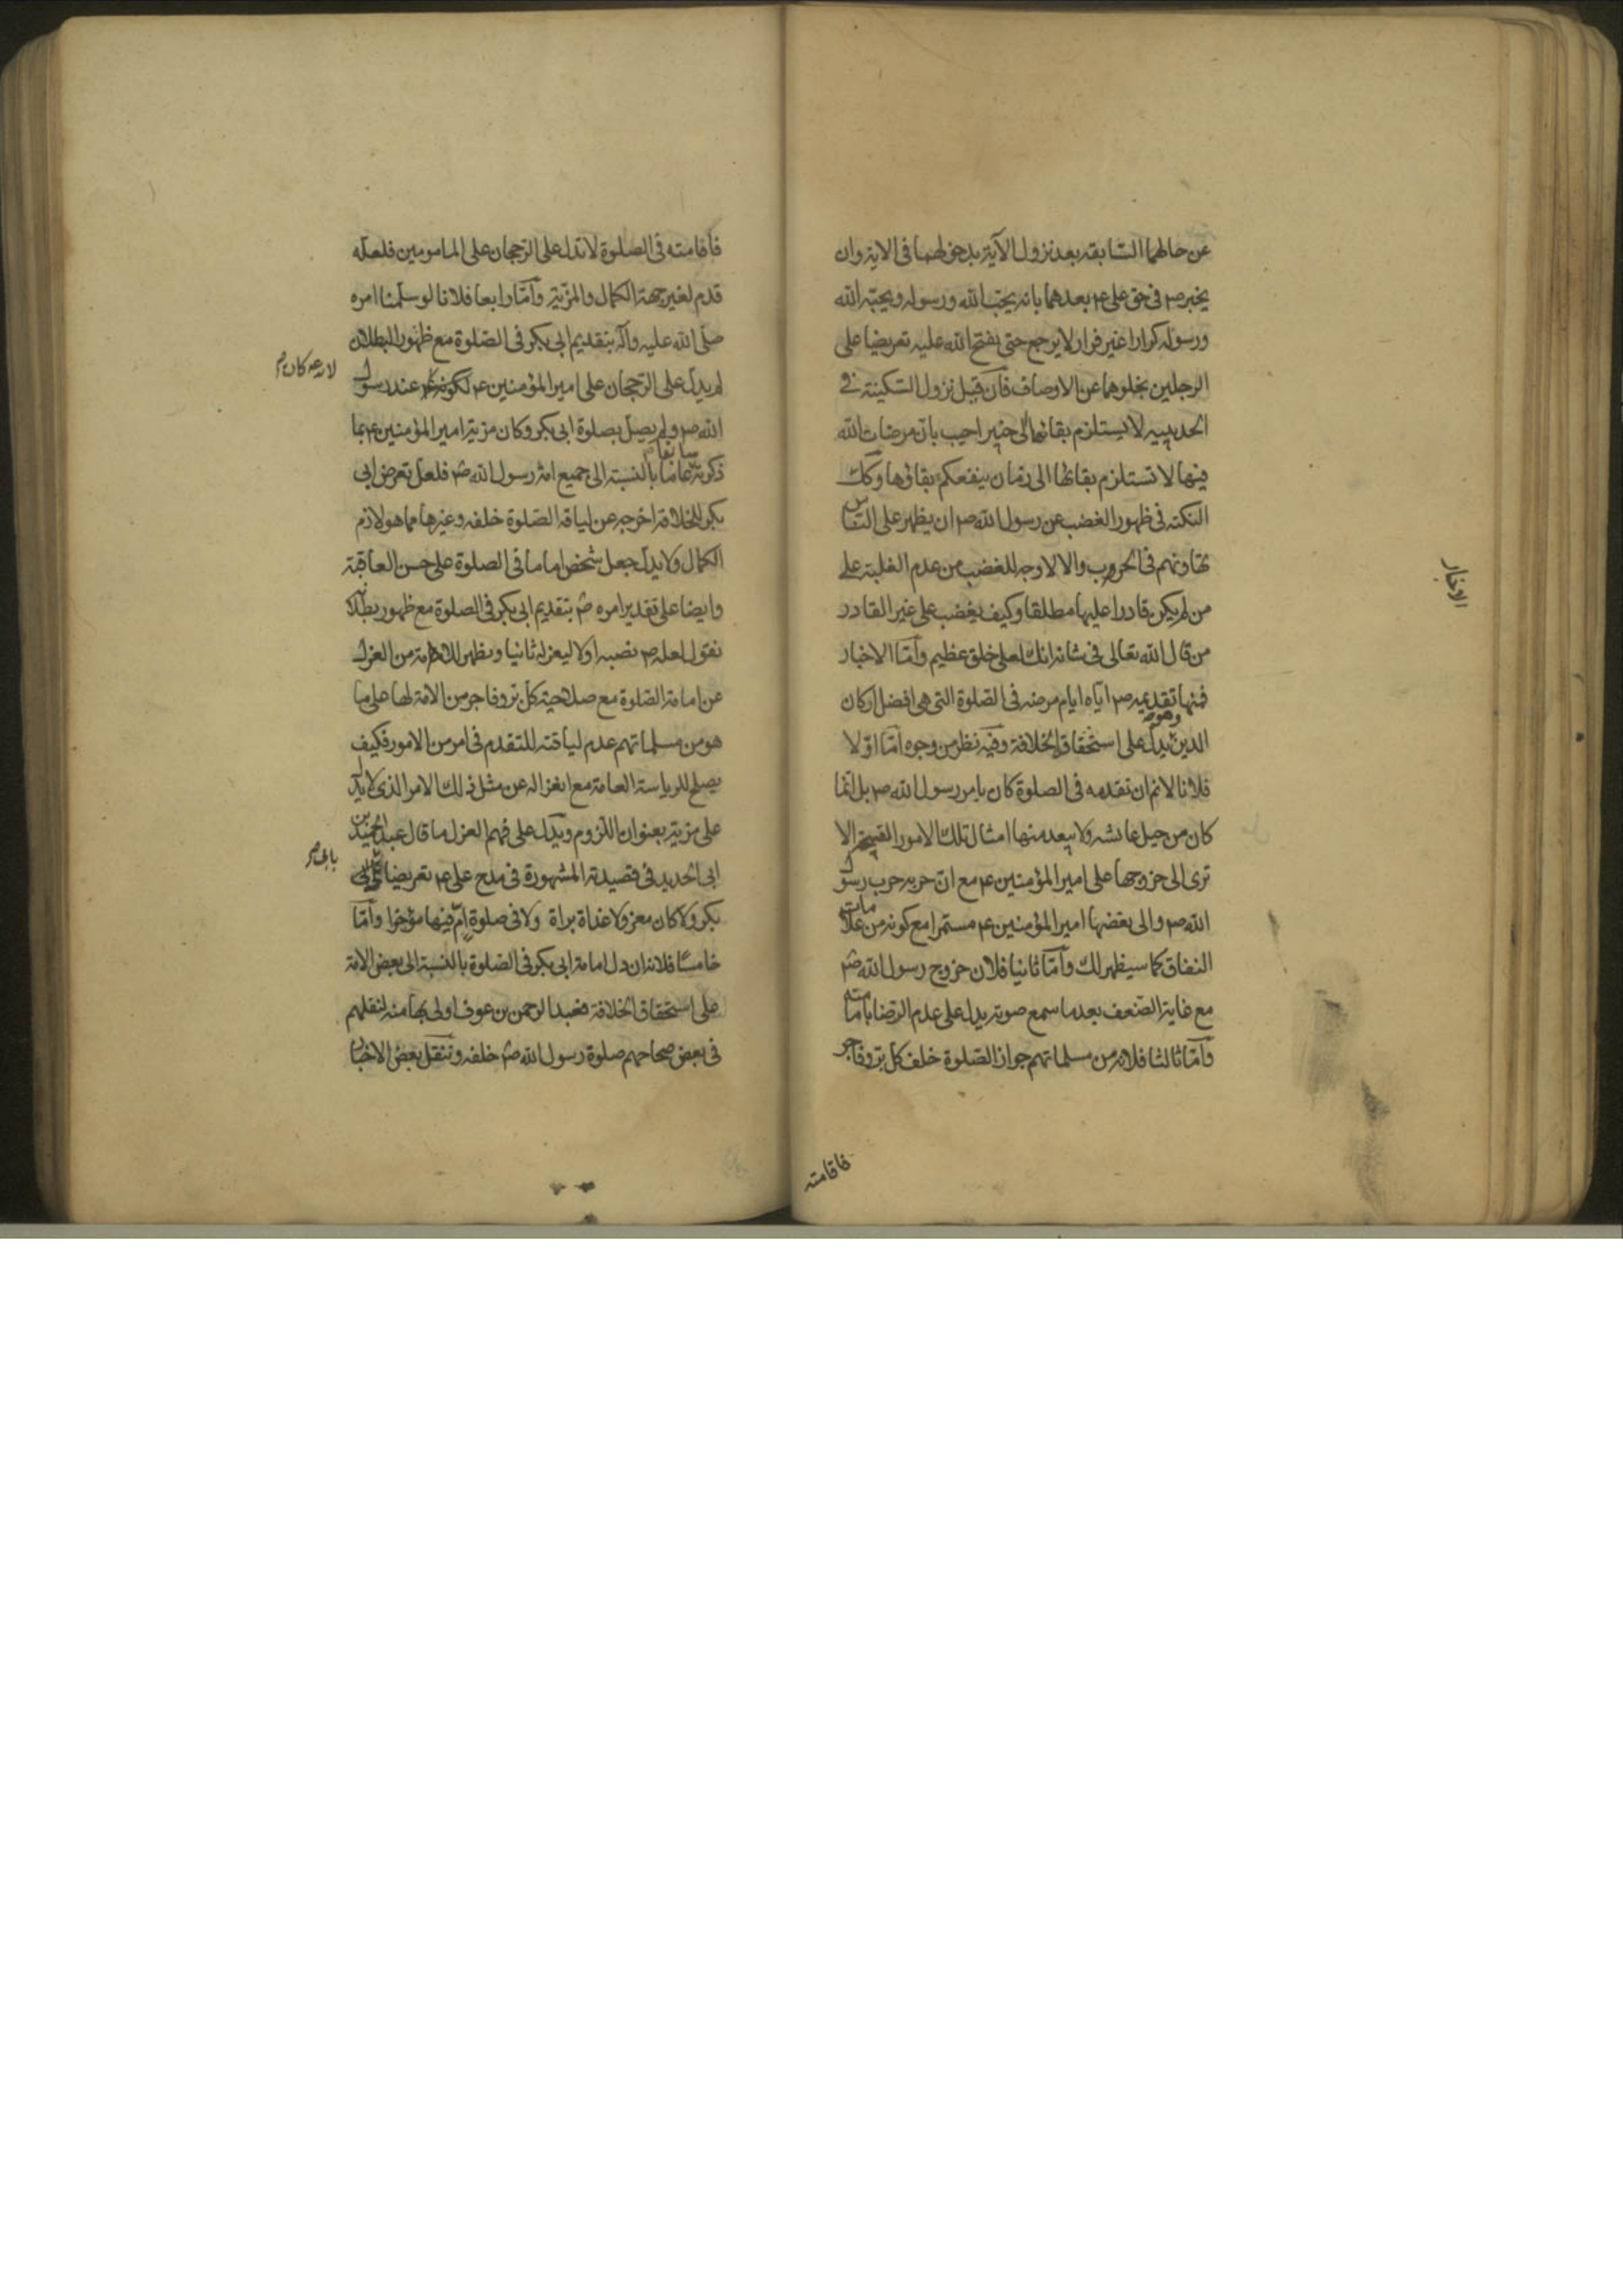 عن حالهما السابقة بعد نزول الآية بدخولهما فى الاية وان
يخبر ص فى حق على ع بعدهما بانه يحب الله ورسوله ويحبه الله
ورسوله كرارا غير فرار لا يرجع حتى يفتح الله عليه تعريضا على
الرجلين بخلوهما عن الاوصاف فان قيل نزول السكينة فى
الحديبيه لا يستلزم بقائها الى خيبر اجيب بان مرضات الله
فيها لا تستلزم بقائها الى زمان ينفعكم بقاؤها وكك
النكته فى ظهور الغضب عن رسول الله ص ان يظهر على الناس
تهاونهم فى الحروب والا لا وجه للغضب من عدم الغلبة على
من لم يكن قادرا عليها مطلقا وكيف يغضب على غير القادر
من قال الله تعالى فى شانه انك لعلى خلق عظيم وأما الاخبار
الاخبار
فمنها تقديمه ص اياه ايام مرضه فى الصلوة التى هى افضل اركان
الدين وهو يدل على استحقاق الخلافة وفيه نظر من وجوه اما اولا
فلانا لانم ان تقدمه فى الصلوة كان بامر رسول الله ص بل انما
كان من حيل عايشه ولا يبعد منها امثال تلك الامور القبيحة الا
ترى الى خروجها على امير المؤمنين ع مع ان حربه حرب رسول
الله ص والى بغضها امير المؤمنين ع مستمرا مع كونه من علامات
النفاق كما سيظهر لك وأما ثانيا فلان خروج رسول الله ص
مع غاية الضعف بعد ما سمع صوته يدل على عدم الرضا بامامته
وأما ثالثا فلانه من مسلماتهم جواز الصلوة خلف كل بر وفاجر
فاقامته
فاقامته فى الصلوة لا تدل على الرجحان على المامومين فلعله
قدم لغير جهة الكمال والمزية وأما رابعا فلانا لو سلمنا امره
صلى الله عليه وآله بتقديم ابى بكر فى الصلوة مع ظهور البطلان
لم يدل على الرجحان على امير المؤمنين ع لكونه عند رسول
الله ص ولم يصل بصلوة ابى بكر وكان مزية امير المؤمنين ع بما
ذكرته سابقا عاما بالنسبة الى جميع امة رسول الله ص فلعل تعرض ابى
بكر للخلافة اخرجه عن لياقة الصلوة خلفه وغيرها مما هو لازم
الكمال ولا يدل جعل شخص اماما فى الصلوة على حسن العاقبة
وايضا على تقدير امره ص بتقديم ابى بكر فى الصلوة مع ظهور بطلانه
نقول لعله ص نصبه اولا ليعزله ثانيا ويظهر للامة من العزل
عن امامة الصلوة مع صلاحية كل بر وفاجر من الامة لها على ما
هو من مسلماتهم عدم لياقته للتقدم فى امر من الامور فكيف
يصلح للرياسة العامة مع انعزاله عن مثل ذلك الامر الذى لا يدل
على مزية بعنوان اللزوم ويدل على فهم العزل ما قال عبد الحميد بن
ابى الحديد فى قصيدته المشهورة فى مدح على ع تعريضا على ابى
بكر ولا كان معزولا غداة براة ولا فى صلوة ام فيها مؤخرا وأما
خامسا فلانه ان دل امامة ابى بكر فى الصلوة بالنسبة الى بعض الامة
على استحقاق الخلافة فعبد الرحمن بن عوف اولى بها منه لنقلهم
فى بعض صحاحهم صلوة رسول الله ص خلفه وننقل بعض الاخبار